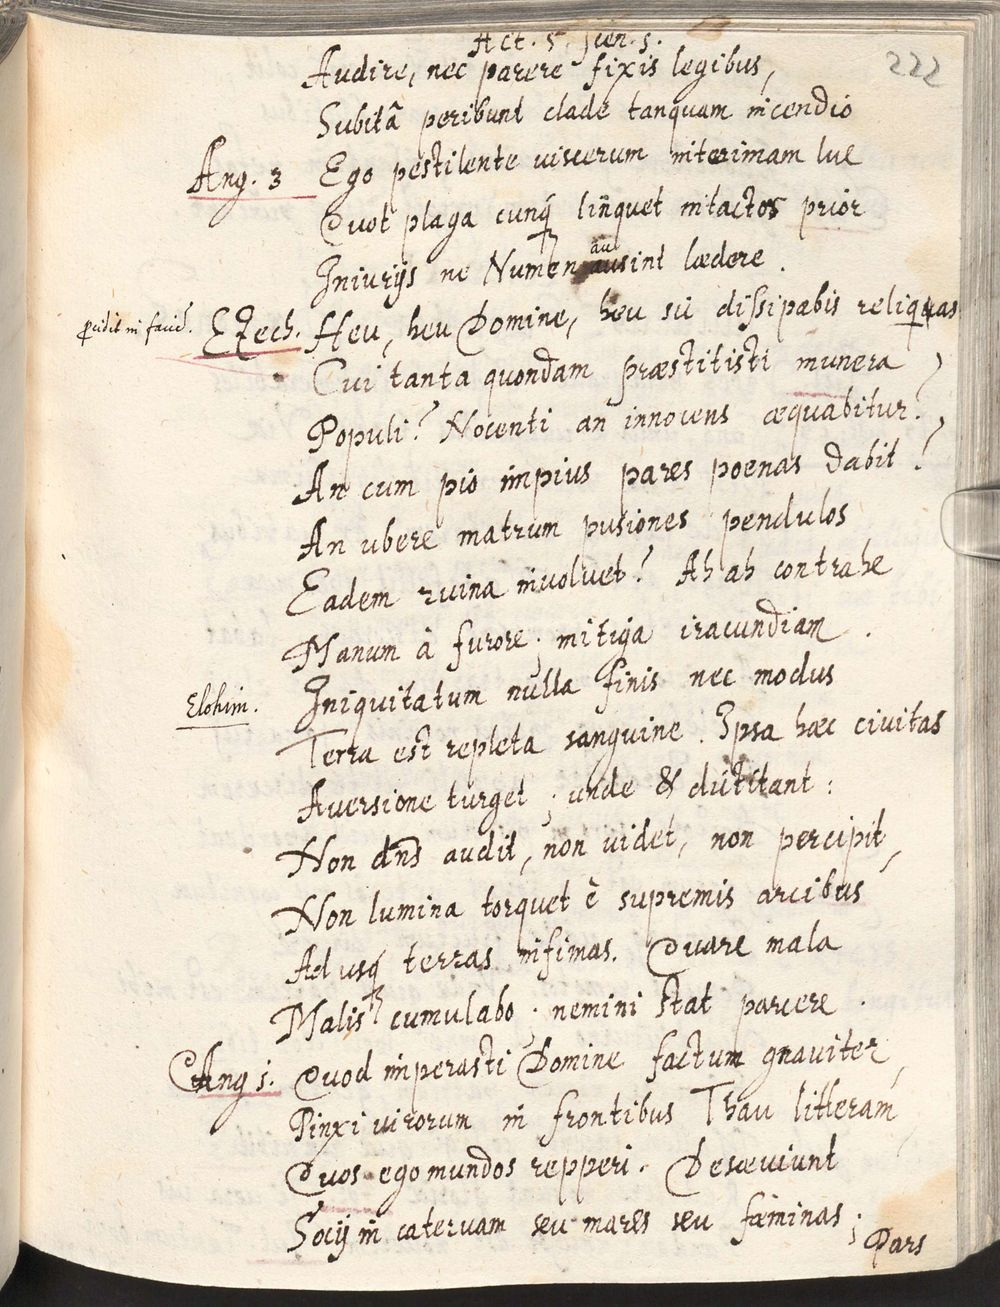 Act. 5. scen. 5.
222
Audire, nec parere fixis legibus,
Subitâ peribunt clade tanquam incendio
Ang. 3 Ego pestilente viscerum interimam lue
Quot plaga cunq̃ linquet intactos prior
Iniurijs ne Numen ausint lædere.
Ezech. Heu, heu Domine, heu sũ dissipabis reliquas
Cui tanta quondam præstitisti munera
Populi? Nocenti an innocens æquabitur?
An cum pio impius pares poenas dabit?
An ubere matrum pusiones pendulos
Eadem ruina involvet? Ah ah contrahe
Manum à furore; mitiga iracundiam.
Elohim. Iniquitatum nulla finis nec modus
Terra est repleta sanguine. Ipsa hæc civitas
Aversione turget; unde & dictitant:
Non dns̃ audit, non videt, non percipit,
Non lumina torquet è supremis arcibus
Ad usq̃ terras infimas. Quare mala
Malis cumulabo; nemini stat parcere.
Ang 1. Quod imperasti Domine factum gnaviter,
Pinxi virorum in frontibus Thau litteram
Quos ego mundos repperi. Desæviunt
Socij in catervam seu mares seu fæminas;
Pars